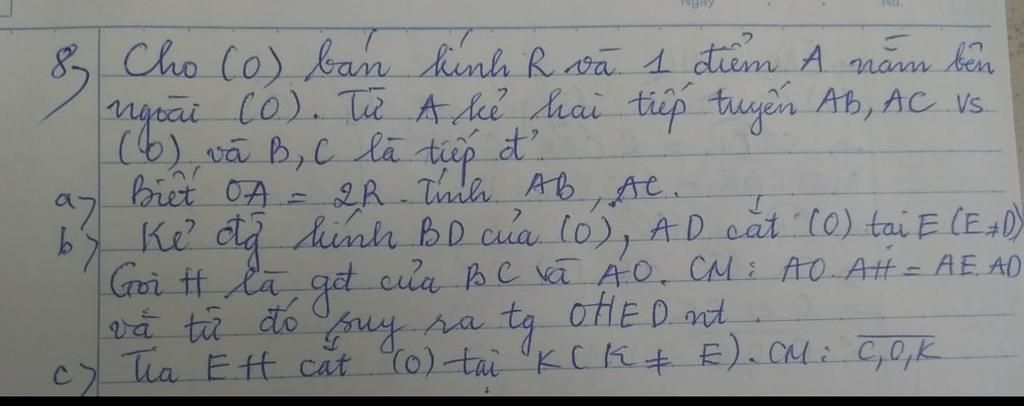 Ngày No.
8) Cho (O) bán kính R và 1 điểm A nằm bên
ngoài (O). Từ A kẻ hai tiếp tuyến AB, AC vs
(O) và B, C là tiếp đ'.
a) Biết OA = 2R. Tính AB, AC.
b) Kẻ đg kính BD của (O), AD cắt (O) tại E (E≠D)
Gọi H là gđ của BC và AO. CM: AO.AH = AE.AD
và từ đó suy ra tg OHED nt.
c) Tia EH cắt (O) tại K (K ≠ E). CM: C,O,K